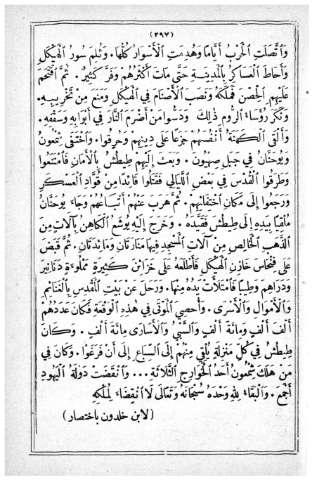 (٢٩٧)
وَٱتَّصَلَتِ ٱلْحَرْبُ أَيَّامًا وَهُدِمَتِ ٱلْأَسْوَارُ كُلُّهَا. وَثُلِمَ سُورُ ٱلْهَيْكَلِ
وَأَحَاطَ ٱلْعَسَاكِرُ بِٱلْمَدِينَةِ حَتَّى مَاتَ أَكْثَرُهُمْ وَفَرَّ كَثِيرٌ. ثُمَّ ٱقْتَحَمَ
عَلَيْهِمِ ٱلْحِصْنَ فَمَلَكَهُ وَنَصَبَ ٱلْأَصْنَامَ فِي ٱلْهَيْكَلِ وَمَنَعَ مِنْ تَخْرِيبِهِ.
وَنَكَرَ رُؤَسَاءُ ٱلرُّومِ ذٰلِكَ. وَدَسُّوا مَنْ أَضْرَمَ ٱلنَّارَ فِي أَبْوَابِهِ وَسَقْفِهِ.
وَأَلْقَى ٱلْكَهَنَةُ أَنْفُسَهُمْ جَزَعًا عَلَى دِينِهِمْ وَحُرِقُوا. وَٱخْتَفَى شِمْعُونُ
وَيُوحَنَّانُ فِي جَبَلِ صِهْيُونَ. وَبَعَثَ إِلَيْهِمْ طِيطُشُ بِٱلْأَمَانِ فَٱمْتَنَعُوا
وَطَرَقُوا ٱلْقُدْسَ فِي بَعْضِ ٱللَّيَالِي فَقَتَلُوا قَائِدًا مِنْ قُوَّادِ ٱلْعَسْكَرِ
وَرَجَعُوا إِلَى مَكَانِ ٱخْتِفَائِهِمْ. ثُمَّ هَرَبَ عَنْهُمْ أَتْبَاعُهُمْ وَجَاءَ يُوحَنَّانُ
مُلْقِيًا بِيَدِهِ إِلَى طِيطُشَ فَقَيَّدَهُ. وَخَرَجَ إِلَيْهِ يُوشَعُ ٱلْكَاهِنُ بِآلَاتٍ مِنَ
ٱلذَّهَبِ ٱلْخَالِصِ مِنْ آلَاتِ ٱلْمَسْجِدِ فِيهَا مَنَارَتَانِ وَمَائِدَتَانِ. ثُمَّ قَبَضَ
عَلَى فِنْحَاسَ خَازِنِ ٱلْهَيْكَلِ فَأَطْلَعَهُ عَلَى خَزَائِنَ كَثِيرَةٍ مَمْلُوءَةٍ دَنَانِيرَ
وَدَرَاهِمَ وَطِيبًا فَٱمْتَلَأَتْ يَدُهُ مِنْهَا. وَرَحَلَ عَنْ بَيْتِ ٱلْمَقْدِسِ بِٱلْغَنَائِمِ
وَٱلْأَمْوَالِ وَٱلْأَسْرَى. وَأُحْصِيَ ٱلْمَوْتَى فِي هٰذِهِ ٱلْوَقْعَةِ فَكَانَ عَدَدُهُمْ
أَلْفَ أَلْفٍ وَمِائَةَ أَلْفٍ وَٱلسَّبْيُ وَٱلْأُسَارَى مِائَةَ أَلْفٍ. وَكَانَ
طِيطُشُ فِي كُلِّ مَنْزِلَةٍ يُلْقِي مِنْهُمْ إِلَى ٱلسِّبَاعِ إِلَى أَنْ فَرَغُوا. وَكَانَ فِي
مَنْ هَلَكَ شِمْعُونُ أَحَدُ ٱلْخَوَارِجِ ٱلثَّلَاثَةِ ... وَٱنْقَضَتْ دَوْلَةُ ٱلْيَهُودِ
أَجْمَعَ. وَٱلْبَقَاءُ لِلّٰهِ وَحْدَهُ سُبْحَانَهُ وَتَعَالَى لَا ٱنْقِضَاءَ لِمُلْكِهِ
(لابن خلدون باختصار)